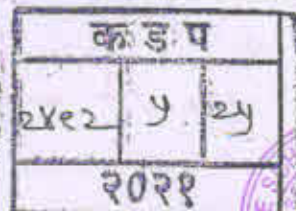 क.ड.प
२४९२ ५ २५
२०२१